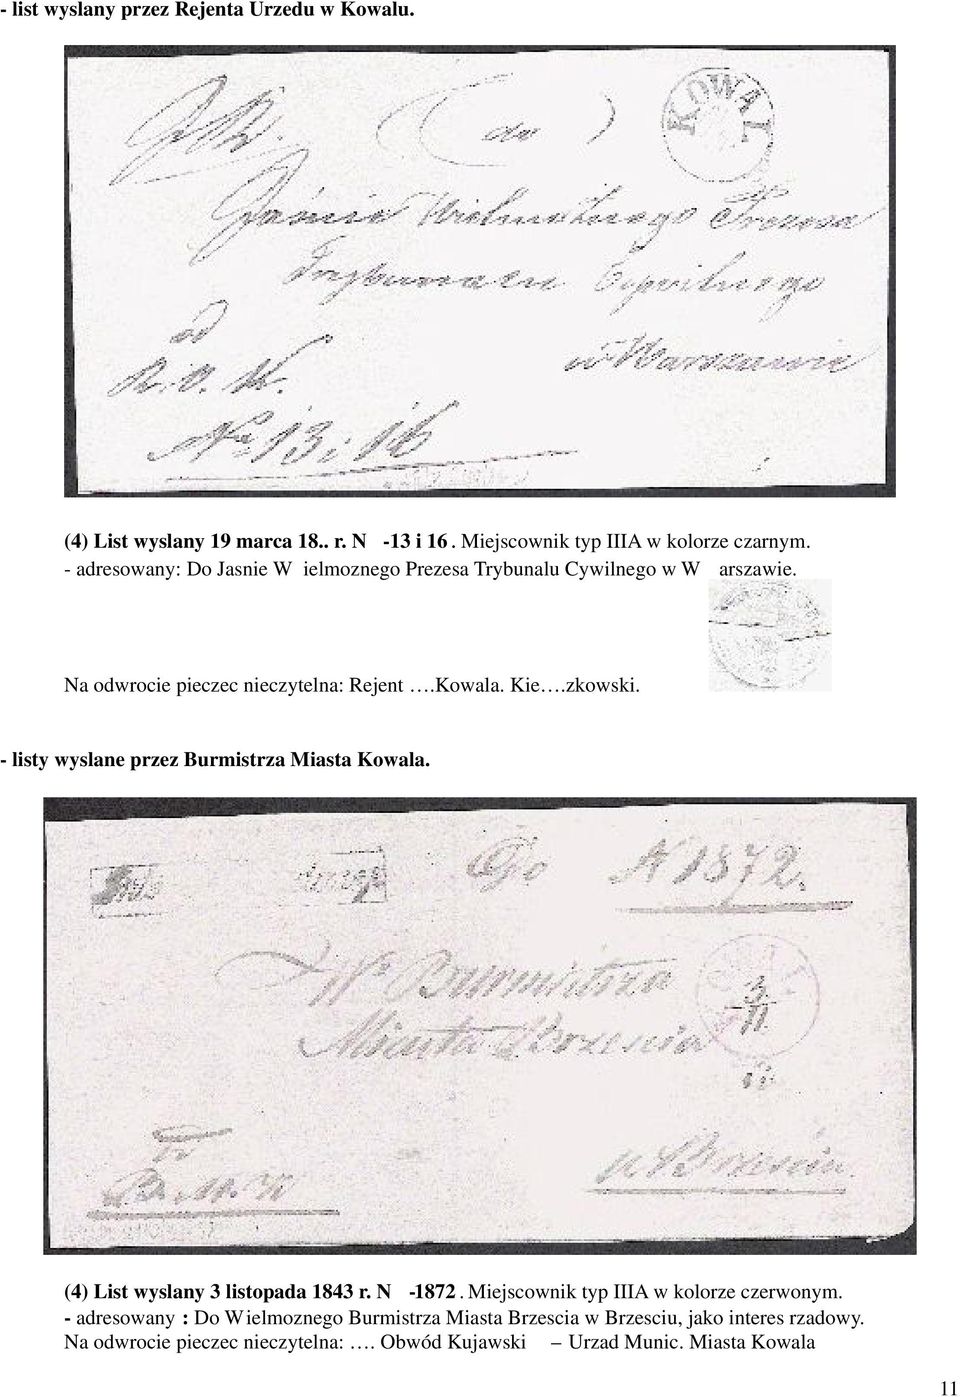 - list wyslany przez Rejenta Urzedu w Kowalu.
KOWAL
do
Jaśnie Wielmożnego Prezesa
Trybunału Cywilnego
od
w Warszawie
R. O. K.
No 13 i 16
(4) List wyslany 19 marca 18.. r. N -13 i 16 . Miejscownik typ IIIA w kolorze czarnym.
- adresowany: Do Jasnie W ielmoznego Prezesa Trybunalu Cywilnego w W arszawie.
Na odwrocie pieczec nieczytelna: Rejent ….Kowala. Kie….zkowski.
- listy wyslane przez Burmistrza Miasta Kowala.
Do N 1872.
W° Burmistrza
3/11
Miasta Brzescia
w Brzesciu
B. M. K
(4) List wyslany 3 listopada 1843 r. N -1872 . Miejscownik typ IIIA w kolorze czerwonym.
- adresowany : Do Wielmoznego Burmistrza Miasta Brzescia w Brzesciu, jako interes rzadowy.
Na odwrocie pieczec nieczytelna: …. Obwód Kujawski – Urzad Munic. Miasta Kowala
11